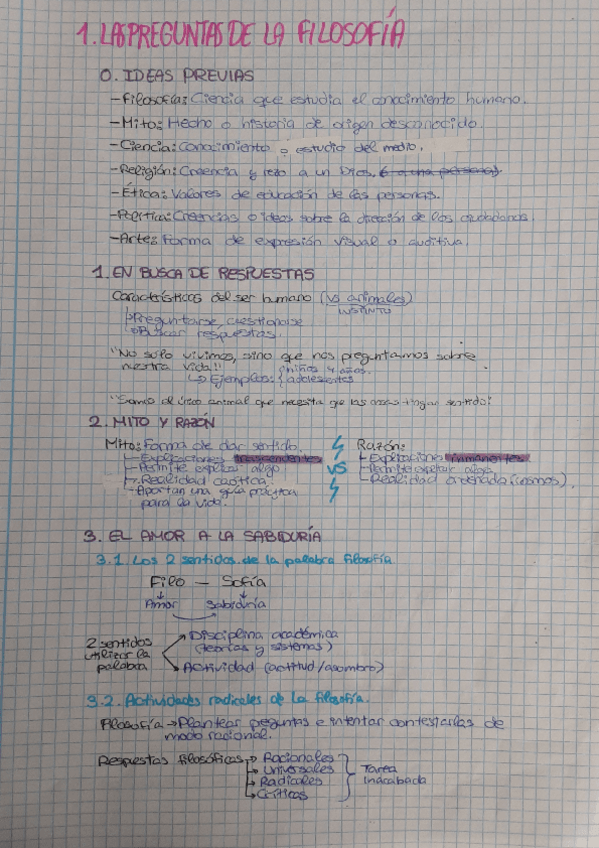 1. LAS PREGUNTAS DE LA FILOSOFÍA
0. IDEAS PREVIAS
- Filosofía: Ciencia que estudia el conocimiento humano.
- Mito: Hecho o historia de origen desconocido.
- Ciencia: Conocimiento o estudio del medio.
- Religión: Creencia y rezo a un Dios.
- Ética: Valores de educación de las personas.
- Política: Creencias o ideas sobre la dirección de los ciudadanos.
- Arte: Forma de expresión visual o auditiva.
1. EN BUSCA DE RESPUESTAS
Características del ser humano (vs animales)
INSTINTO
Preguntarse, cuestionarse
Buscar respuestas.
"No solo vivimos, sino que nos preguntamos sobre
nuestra vida!!
Ejemplos: niños 4 años.
adolescentes
"Somos el único animal que necesita que las cosas tengan sentido."
2. MITO Y RAZÓN
Mito: Forma de dar sentido.
- Explicaciones trascendentes
- Permite explicar algo
- Realidad caótica
- Aportan una guía práctica
para la vida.
VS
Razón:
- Explicaciones inmanentes
- Permite explicar algo
- Realidad ordenada (cosmos).
3. EL AMOR A LA SABIDURÍA
3.1. Los 2 sentidos de la palabra filosofía
Filo — Sofía
Amor Sabiduría
2 sentidos
utilizar la
palabra
Disciplina académica
(teorías y sistemas)
Actividad (actitud/asombro)
3.2. Actividades radicales de la filosofía.
Filosofía → Plantear preguntas e intentar contestarlas de
modo racional.
Respuestas filosóficas → Racionales
→ Universales
→ Radicales
→ Críticas
Tarea
inacabada